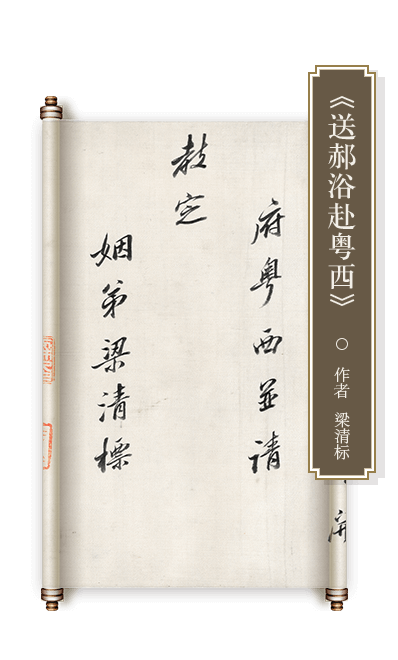 《送郝浴赴粤西》
○ 作者 梁清标
開
府粤西並請
教定
姻弟梁清標